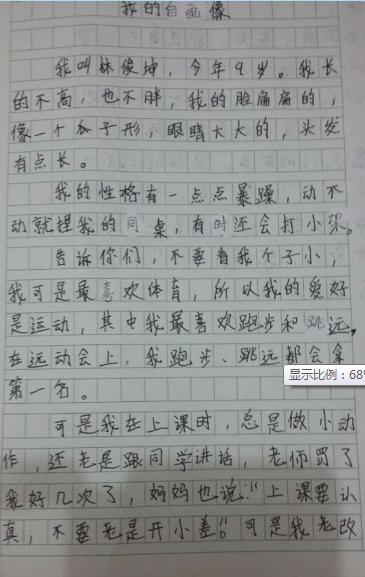 我的自画像
我叫林俊坤，今年9岁。我长
的不高，也不胖，我的脸扁扁的，
像一个瓜子形，眼睛大大的，头发
有点长。
我的性格有一点点暴躁，动不
动就捏我的同桌，有时还会打小架。
告诉你们，不要看我个子小，
我可是最喜欢体育，所以我的爱好
是运动，其中我最喜欢跑步和跳远，
在运动会上，我跑步、跳远都会拿
第一名。
显示比例：68%
可是我在上课时，总是做小动
作，还老是跟同学讲话，老师罚了
我好几次了，妈妈也说：“上课要认
真，不要老是开小差。”可是我老改